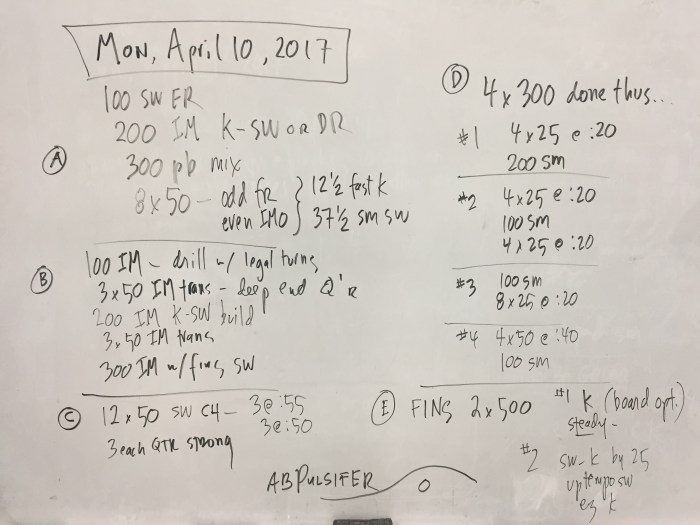 Mon, April 10, 2017
A
100 SW ER
200 IM K-SW OR DR
300 pb mix
8 x 50 - odd fr
even IMO
12 1/2 fast k
37 1/2 sm sw
B
100 IM - drill w/ legal turns
3 x 50 IM trans - deep end Q'R
200 IM K-SW build
3 x 50 IM trans
300 IM w/ fins SW
C
12 x 50 SW C4 - 3@:55
3@:50
3 each QTR strong
D
4 x 300 done thus...
#1 4 x 25 @ :20
200 sm
#2 4 x 25 @ :20
100 sm
4 x 25 @ :20
#3 100 sm
8 x 25 @ :20
#4 4 x 50 @ :40
100 sm
E
FINS 2 x 500 #1 K (board opt.)
steady -
#2 sw-k by 25
uptempo sw
ez k
ABPULSIFER